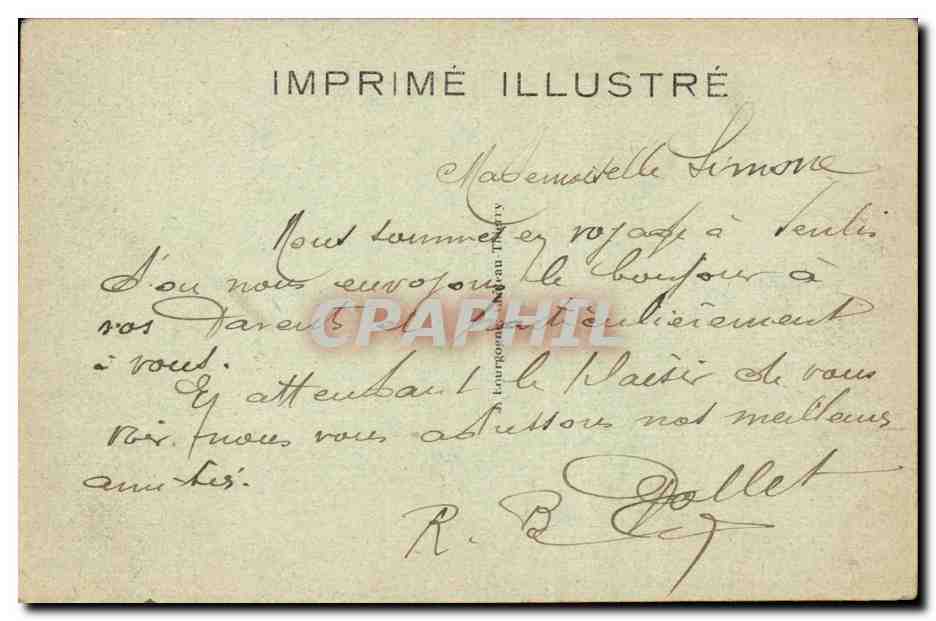 IMPRIMÉ ILLUSTRÉ
Mademoiselle Simone
Nous sommes en voyage à Senlis
d'ou nous envoyons le bonjour à
vos Parents et particulièrement
à vous.
En attendant le plaisir de vous
voir nous vous adressons nos meilleurs
amitiés.
R. B Dollet
CPARPHIL
J. Bourgogne
Thierry